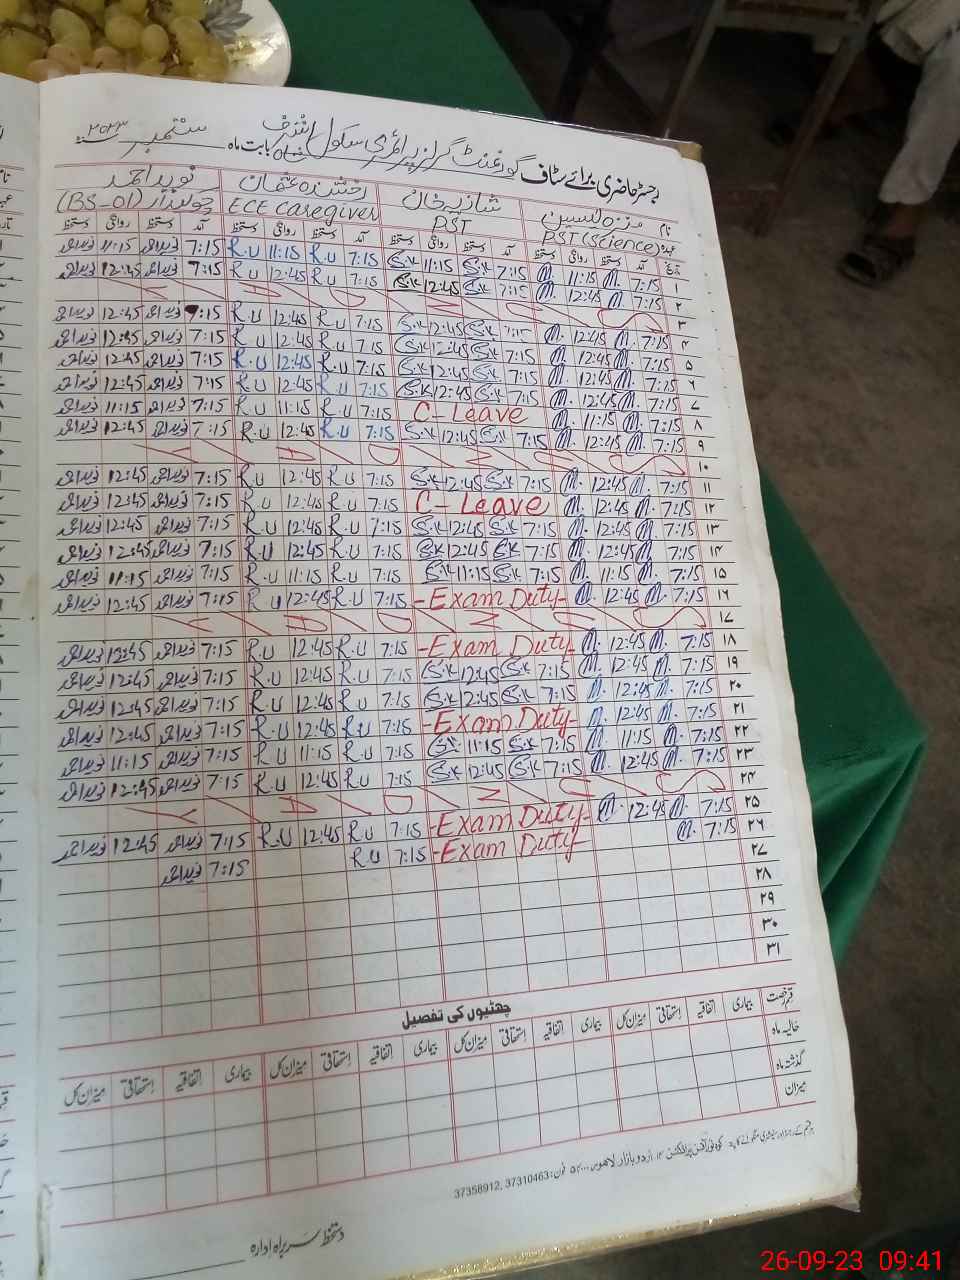 رجسٹر حاضری برائے سٹاف گورنمنٹ گرلز پرائمری سکول اشرف بابت ماہ ستمبر ۲۰۲۳
نام شازیہ خان رخشندہ عثمان نوید احمد
عہدہ PST (Science) PST ECE Caregiver چوکیدار (BS-01)
تاریخ آمد دستخط روانگی دستخط آمد دستخط روانگی دستخط آمد دستخط روانگی دستخط آمد دستخط روانگی دستخط
۱ 7:15 M. 11:15 M. 7:15 S.K 11:15 S.K 7:15 R.U 11:15 R.U 7:15 نویداحمد 11:15 نویداحمد
۲ 7:15 M. 12:45 M. 7:15 S.K 12:45 S.K 7:15 R.U 12:45 R.U 7:15 نویداحمد 12:45 نویداحمد
۳ S U N D A Y
۴ 7:15 M. 12:45 M. 7:15 S.K 12:45 S.K 7:15 R.U 12:45 R.U 7:15 نویداحمد 12:45 نویداحمد
۵ 7:15 M. 12:45 M. 7:15 S.K 12:45 S.K 7:15 R.U 12:45 R.U 7:15 نویداحمد 12:45 نویداحمد
۶ 7:15 M. 12:45 M. 7:15 S.K 12:45 S.K 7:15 R.U 12:45 R.U 7:15 نویداحمد 12:45 نویداحمد
۷ 7:15 M. 12:45 M. 7:15 S.K 12:45 S.K 7:15 R.U 12:45 R.U 7:15 نویداحمد 12:45 نویداحمد
۸ 7:15 M. 11:15 M. C-Leave 7:15 R.U 11:15 R.U 7:15 نویداحمد 11:15 نویداحمد
۹ 7:15 M. 12:45 M. 7:15 S.K 12:45 S.K 7:15 R.U 12:45 R.U 7:15 نویداحمد 12:45 نویداحمد
۱۰ S U N D A Y
۱۱ 7:15 M. 12:45 M. 7:15 S.K 12:45 S.K 7:15 R.U 12:45 R.U 7:15 نویداحمد 12:45 نویداحمد
۱۲ 7:15 M. 12:45 M. C-Leave 7:15 R.U 12:45 R.U 7:15 نویداحمد 12:45 نویداحمد
۱۳ 7:15 M. 12:45 M. 7:15 S.K 12:45 S.K 7:15 R.U 12:45 R.U 7:15 نویداحمد 12:45 نویداحمد
۱۴ 7:15 M. 12:45 M. 7:15 S.K 12:45 S.K 7:15 R.U 12:45 R.U 7:15 نویداحمد 12:45 نویداحمد
۱۵ 7:15 M. 11:15 M. 7:15 S.K 11:15 S.K 7:15 R.U 11:15 R.U 7:15 نویداحمد 11:15 نویداحمد
۱۶ 7:15 M. 12:45 M. -Exam Duty- 7:15 R.U 12:45 R.U 7:15 نویداحمد 12:45 نویداحمد
۱۷ S U N D A Y
۱۸ 7:15 M. 12:45 M. -Exam Duty- 7:15 R.U 12:45 R.U 7:15 نویداحمد 12:45 نویداحمد
۱۹ 7:15 M. 12:45 M. 7:15 S.K 12:45 S.K 7:15 R.U 12:45 R.U 7:15 نویداحمد 12:45 نویداحمد
۲۰ 7:15 M. 12:45 M. 7:15 S.K 12:45 S.K 7:15 R.U 12:45 R.U 7:15 نویداحمد 12:45 نویداحمد
۲۱ 7:15 M. 12:45 M. -Exam Duty- 7:15 R.U 12:45 R.U 7:15 نویداحمد 12:45 نویداحمد
۲۲ 7:15 M. 11:15 M. 7:15 S.K 11:15 S.K 7:15 R.U 11:15 R.U 7:15 نویداحمد 11:15 نویداحمد
۲۳ 7:15 M. 12:45 M. 7:15 S.K 12:45 S.K 7:15 R.U 12:45 R.U 7:15 نویداحمد 12:45 نویداحمد
۲۴ S U N D A Y
۲۵ 7:15 M. 12:45 M. -Exam Duty- 7:15 R.U 12:45 R.U 7:15 نویداحمد 12:45 نویداحمد
۲۶ 7:15 M. -Exam Duty- 7:15 R.U 7:15 نویداحمد
۲۷
۲۸
۲۹
۳۰
۳۱
چھٹیوں کی تفصیل
قسم رخصت بیماری اتفاقیہ استحقاقی میزان کل بیماری اتفاقیہ استحقاقی میزان کل بیماری اتفاقیہ استحقاقی میزان کل
حالیہ ماہ
گذشتہ ماہ
میزان
اردو بازار لاہور فون: 37310463, 37358912
دستخط سربراہ ادارہ
26-09-23 09:41